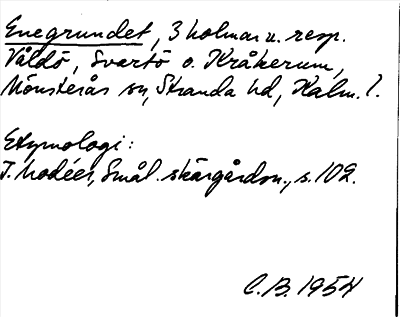 Enegrundet, 3 holmar u. resp.
Våldö, Svartö o. Kråkerum,
Mönsterås sn, Stranda hd, Kalm. l.
Etymologi:
I. Modéer, Smål. skärgårdsn., s. 102.
C.B. 1954